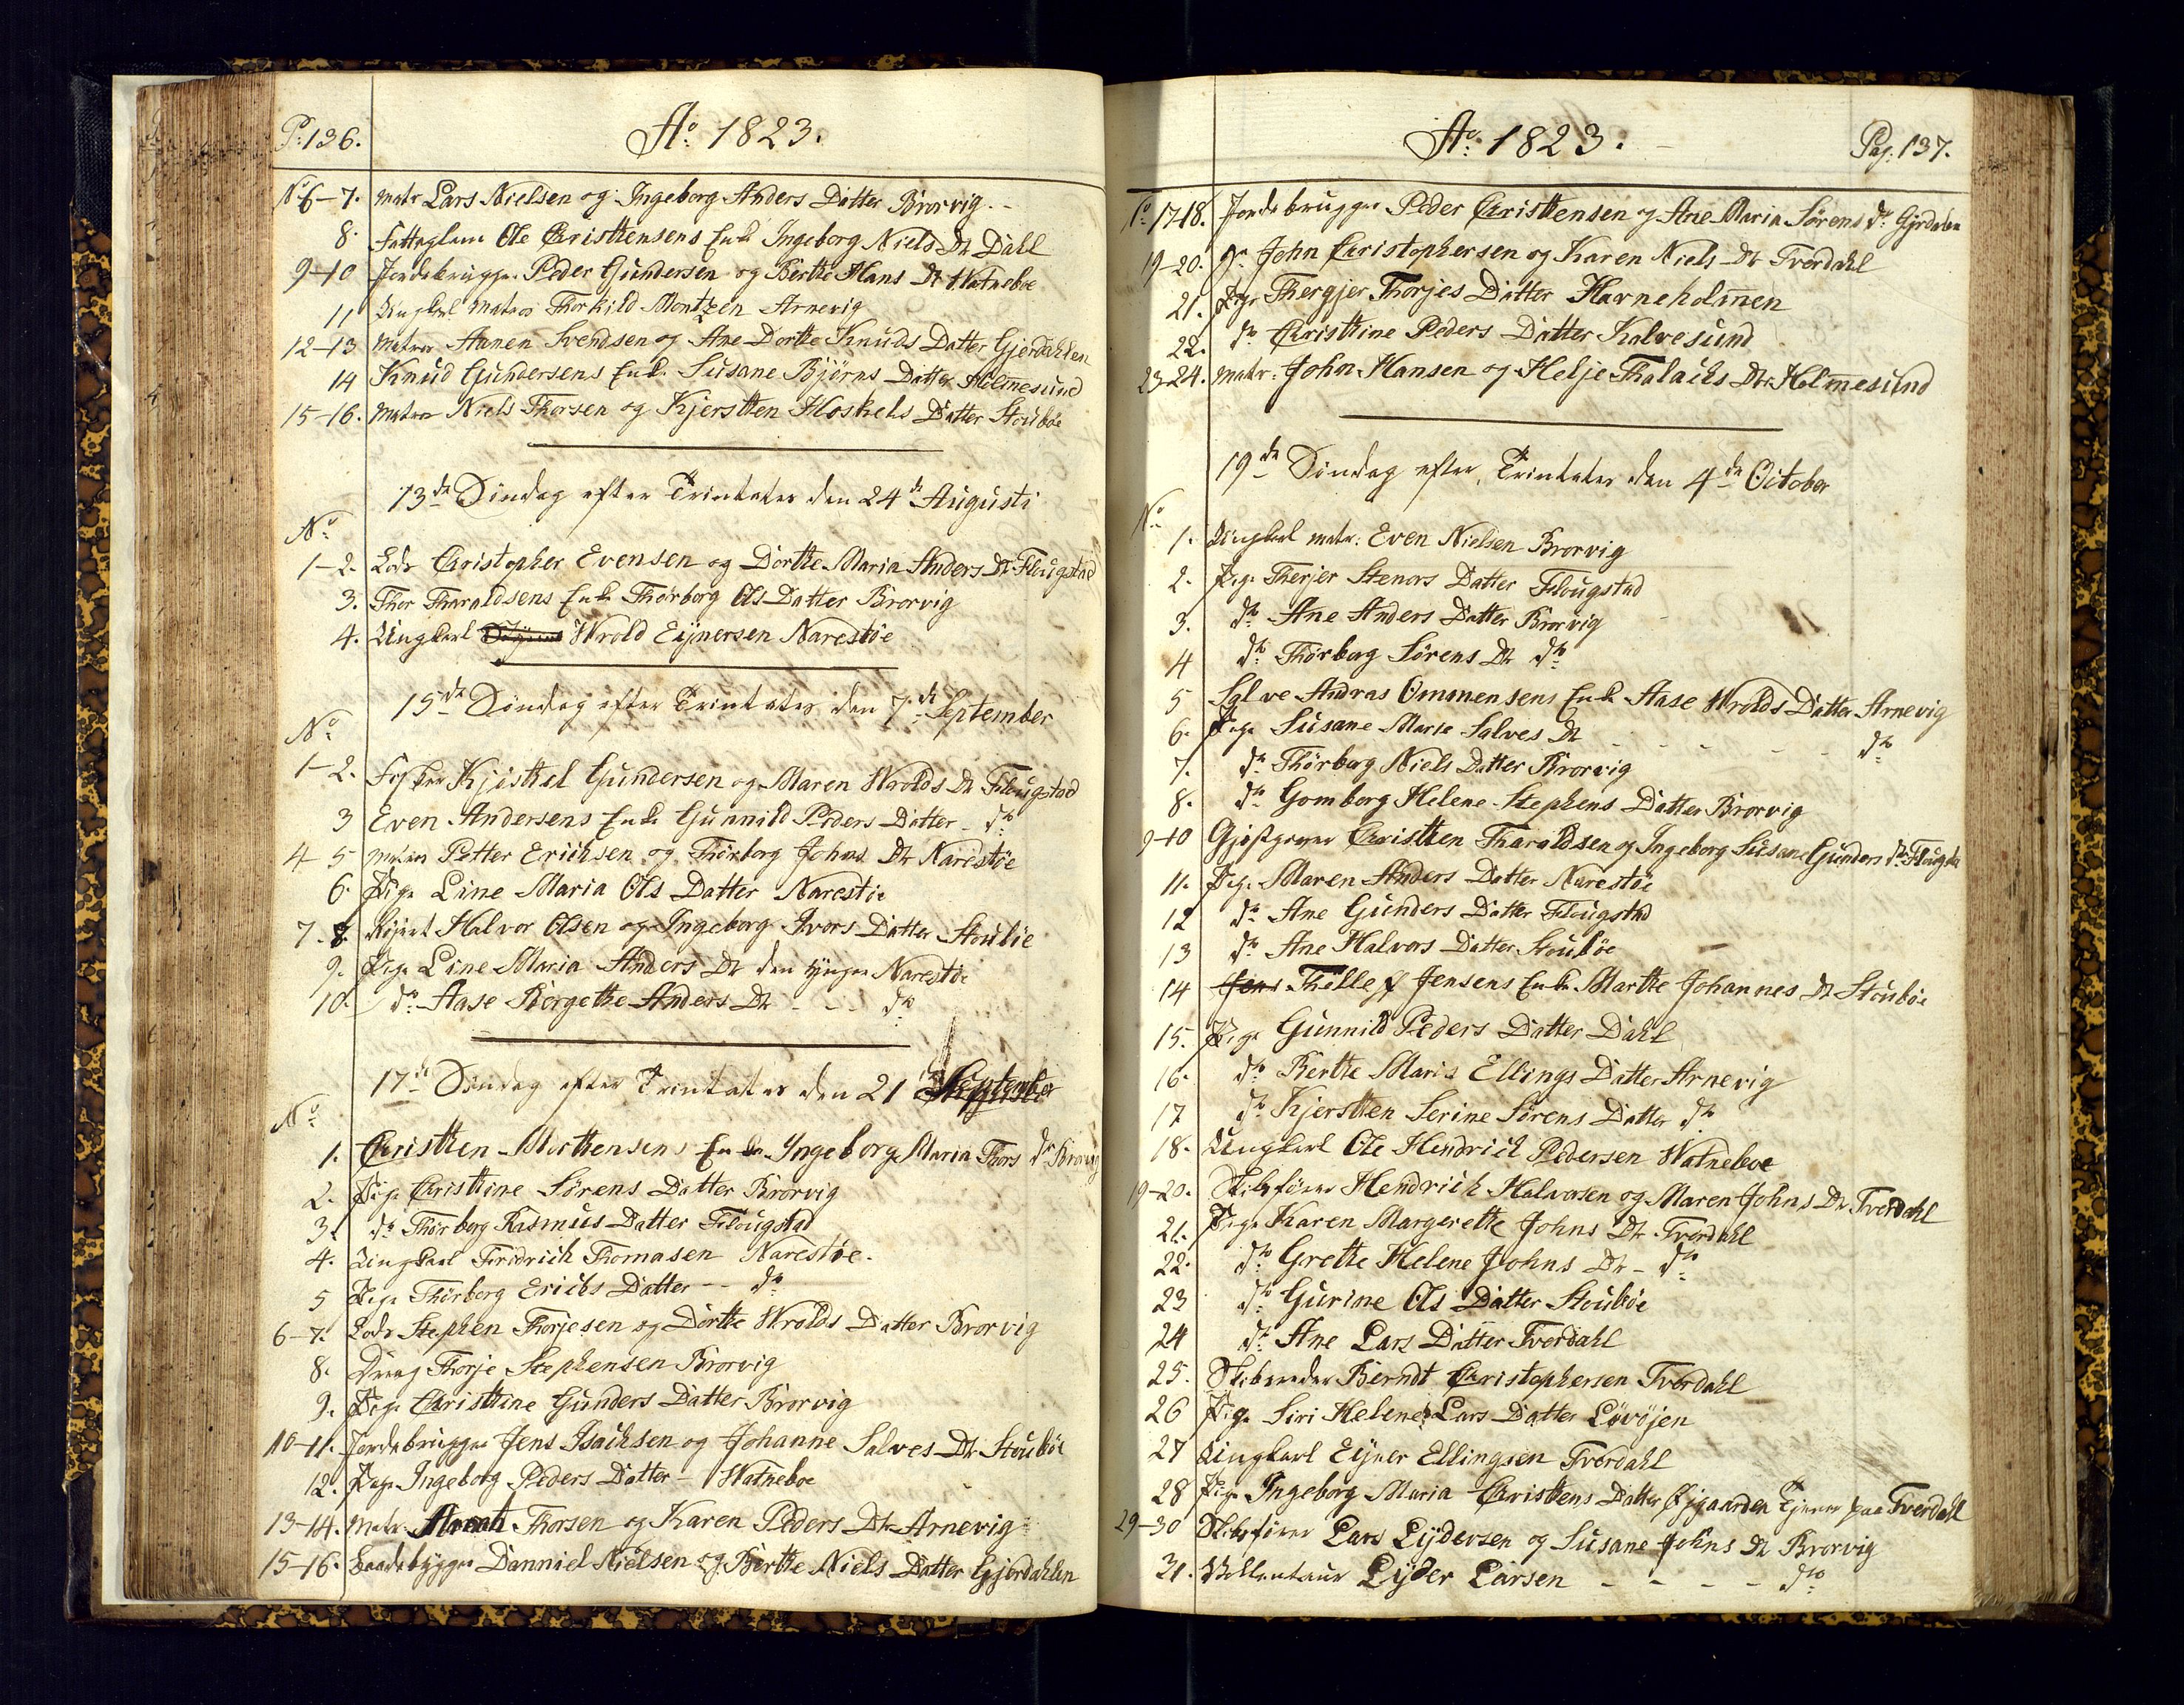 P: 136.
Ao 1823.
No 6-7. matr Lars Nielsen og Ingeborg Anders Datter Brorvig -
8. Fattiglem Ole Christhensens Enke Ingeborg Niels Dr Dahl
9-10 Jordebruger Peder Gundersen og Birthe Hans Dr Watneboe
11 Ungkarl matros Thorkild Montzen Arnevig
12-13 matros Aanen Svendsen og Ane Dorthe Knuds Datter Gjerdahlen
14 Knud Gundersens Enke Susane Bjørns Datter Holmesund
15-16. matros Niels Thorsen og Kjersthen Hoskels Datter Stoubøe
13de Søndag efter Trinitates den 24de Augusti
No
1-2. Lods Christopher Evensen og Dorthe Maria Anders Dr Flougstad
3. Thor Tharaldsens Enke Thorborg Ols Datter Brorvig
4. Ungkarl Wrold Eynersen Narestøe
15de Søndag efter Trinitates den 7de September
No
1-2. Fisker Kjisthel Gundersen og Maren Wrolds Dr Flougstad
3 Even Andersens Enke Gunnild Peders Datter - do
4-5 matros Petter Erichsen og Thorborg Johns Dr Narestøe
6. Pige Line Maria Ols Datter Narestøe
7-8. Halvor Olsen og Ingeborg Ivors Datter Stoubøe
9. Pige Line Maria Anders Dr den yngre Narestøe
10. do Aase Börgethe Anders Dr - - - do
17de Søndag efter Trinitates den 21 September
No
1. Christhen Morthensens Enke Ingeborg Maria Thors dr Brorvig
2. Pige Christhine Sørens Datter Brorvig
3. do Thorborg Rasmus Datter Flougstad
4. Ungkarl Fridrich Thomasen Narestøe.
5 Pige Thorborg Erichs Datter - - do
6-7. Lods Stephen Thorjesen og Dorthe Wrolds Datter Brorvig
8. Dreng Thorje Stephensen Brorvig
9. Pige Christhine Gunders Datter Brorvig
10-11. Jordebruger Jens Isachsen og Johanne Salves Dr Stoubøe
12. Pige Ingeborg Peders Datter - Watneboe
13-14. Matr. Thorsen og Karen Peders Dr Arnevig
15-16. Baadebygger Danniel Nielsen og Birthe Niels Datter Gjerdahlen
Ao 1823.
Pag: 137.
No 17-18. Jordebruger Peder Christhensen og Ane Maria Sørens dr Gjerdalen
19-20. do John Christophersen og Karen Niels Dr Tverdahl
21. Pige Thergjer Thorjes Datter Havneholmen
22. do Christhine Peders Datter Kalvesund
23-24. matr: John Hansen og Helje Thalachs Dr Holmesund
19de Søndag efter Trinitates den 4de October
No
1. Ungkarl matr: Even Nielsen Brorvig
2. Pige Therjer Stenors Datter Flougstad
3. do Ane Anders Datter Brorvig
4 do Thorborg Sørens Dr do
5 Salve Andras Ommensens Enke Aase Wrolds Datter Arnevig
6. Pige Susane Marie Salves Dr - - - - - do
7. do Thorborg Niels Datter Brorvig
8. do Gomborg Helene Stephens Datter Brorvig
9-10 Gjestgiver Christhen Tharaldsen og Ingeborg Susane Gunders dr Flougsta
11. Pige Maren Anders Datter Narestøe
12 do Ane Gunders Datter Flougstad
13 do Ane Halvors Datter Stoubøe
14 Jens Thellef Jensens Enke Marthe Johannes Dr Stoubøe
15. Pige Gunnild Peders Datter Dahl
16. do Berthe Maria Ellings Datter Arnevig
17 do Kjersthen Serine Sørens Datter do
18. Ungkarl Ole Hendrich Pedersen Watneboe
19-20. Skibsfører Hendrich Halvorsen og Maren Johns Dr Tverdahl
21. Pige Karen Margrethe Johns Dr Tverdahl
22. do Grethe Helene Johns Dr - do
23 do Gurine Ols Datter Stoubøe
24 do Ane Lars Datter Tverdahl
25. Skibsreder Berndt Christophersen Tverdahl
26 Pige Siri Helene Lars Datter Løvøjen
27 Ungkarl Eyner Ellingsen Tverdahl
28 Pige Ingeborg Maria Christhens Datter Øjgaarden Tjener paa Tverdahl
29-30 Skibsfører Lars Lydersen og Susane Johns Dr Brorvig
31. Lyder Larsen - - - - do